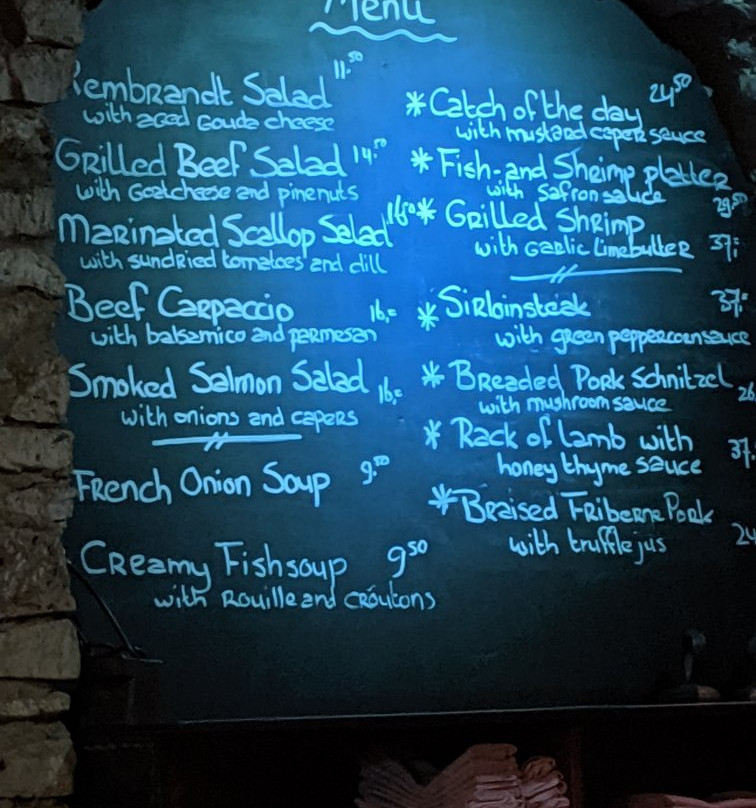 Menu
Rembrandt Salad 11.50
with aged Gouda cheese
Grilled Beef Salad 14.50
with Goatcheese and pinenuts
Marinated Scallop Salad 16.50
with sundried tomatoes and dill
Beef Carpaccio 16,=
with balsamico and parmesan
Smoked Salmon Salad 16,=
with onions and capers
French Onion Soup 9.50
Creamy Fishsoup 9 50
with Rouille and croutons
* Catch of the day 24 50
with mustard caper sauce
* Fish- and Shrimp platter
with Safron sauce 29.50
* Grilled Shrimp
with Garlic Limebutter 37,=
* Sirloinsteak 37,=
with green peppercornsauce
* Breaded Pork Schnitzel
with mushroom sauce
* Rack of lamb with
honey thyme sauce 37,
* Braised Pork
with truffle jus